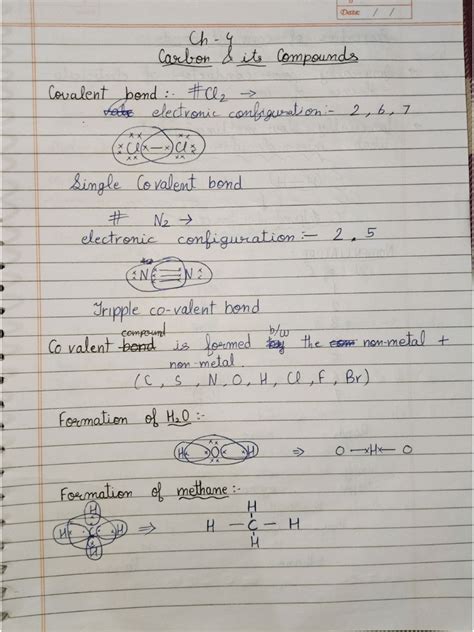 Date: / /
Ch - 4
Carbon & its Compounds
Covalent bond :- #Cl2 →
electronic configuration :- 2, 6, 7
Cl x — Cl
Single Covalent bond
# N2 →
electronic configuration :— 2, 5
N N
Tripple co-valent bond
compound b/w
Covalent bond is formed by the com non-metal +
non-metal.
(C, S, N, O, H, Cl, F, Br)
Formation of H2O :-
H O H ⇒ O —x H x— O
Formation of methane :-
H
H C H ⇒ H — C — H
H
H
H